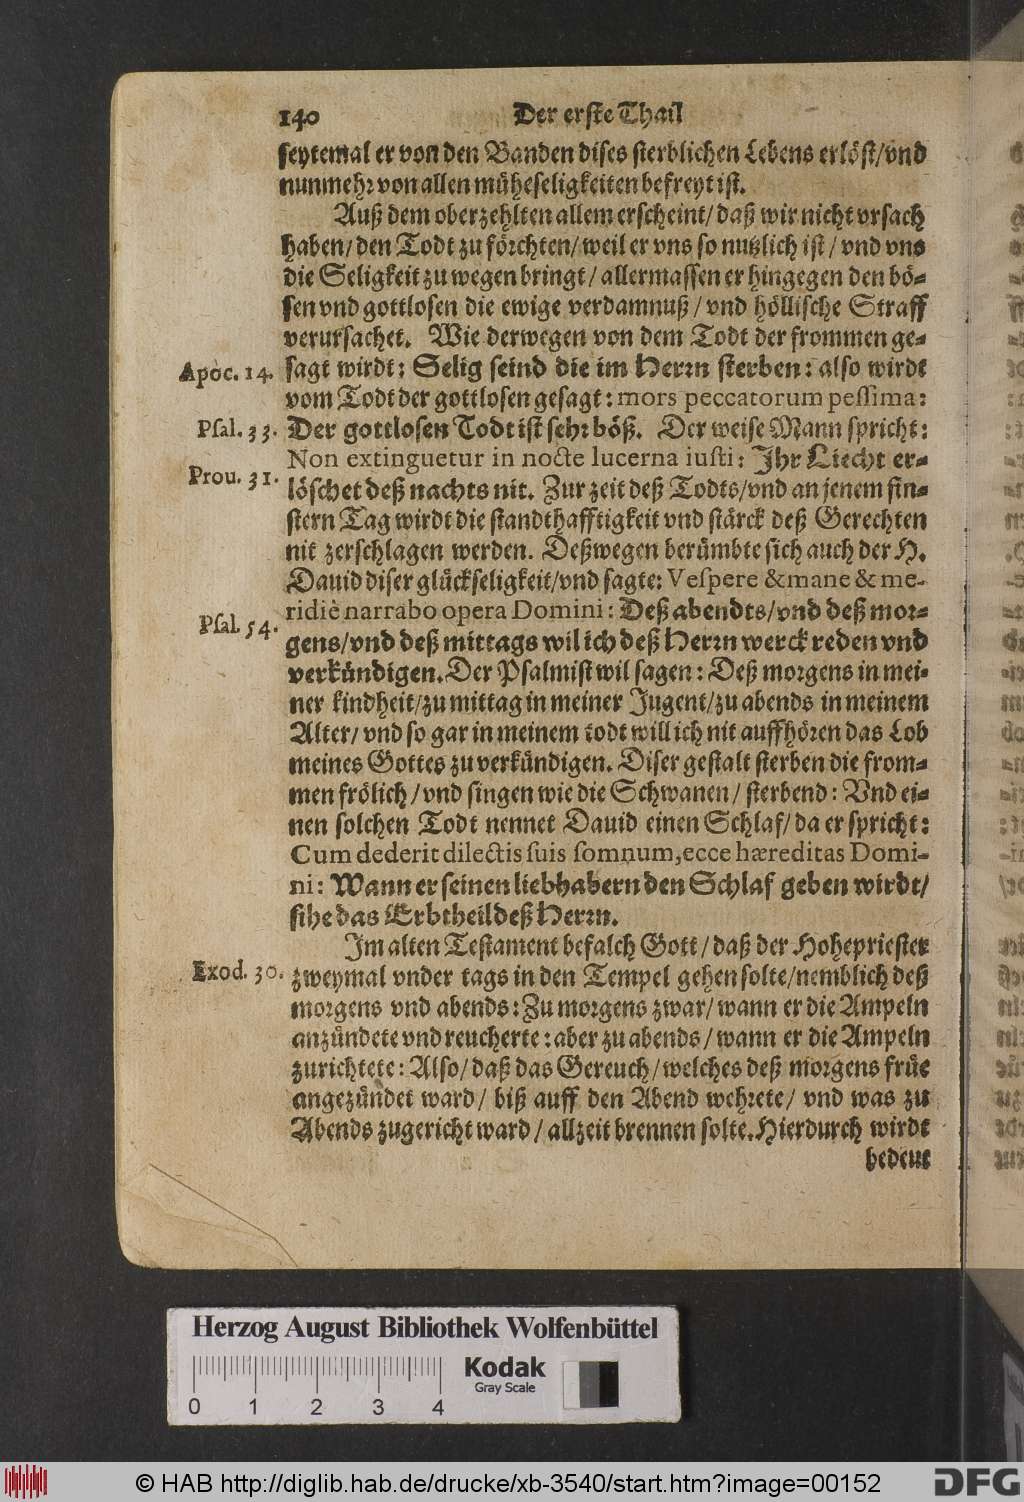 140 Der erste Thail
seytemal er von den Banden dises sterblichen Lebens erlöst/vnd
nunmehr von allen müheseligkeiten befreyt ist.
Auß dem oberzehlten allem erscheint/ daß wir nicht vrsach
haben/ den Todt zu förchten/ weil er vns so nutzlich ist/ vnd vns
die Seligkeit zu wegen bringt/ allermassen er hingegen den bö-
sen vnd gottlosen die ewige verdamnuß/ vnd höllische Straff
verursachet. Wie derwegen von dem Todt der frommen ge-
Apoc. 14. sagt wirdt: Selig seind die im Herrn sterben: also wirdt
vom Todt der gottlosen gesagt: mors peccatorum pessima:
Psal. 33. Der gottlosen Todt ist sehr böß. Der weise Mann spricht:
Prou. 31. Non extinguetur in nocte lucerna iusti: Ihr Liecht er-
löschet deß nachts nit. Zur zeit deß Todts/vnd an jenem fin-
stern Tag wirdt die standthafftigkeit vnd stärck deß Gerechten
nit zerschlagen werden. Deßwegen berümbte sich auch der H.
Dauid diser glückseligkeit/vnd sagte: Vespere & mane & me-
Psal. 54. ridiè narrabo opera Domini: Deß abendts/vnd deß mor-
gens/vnd deß mittags wil ich deß Herrn werck reden vnd
verkündigen. Der Psalmist wil sagen: Deß morgens in mei-
ner kindheit/zu mittag in meiner Jugent/zu abends in meinem
Alter/ vnd so gar in meinem todt will ich nit auffhören das Lob
meines Gottes zu verkündigen. Diser gestalt sterben die from-
men frölich/ vnd singen wie die Schwanen/ sterbend: Vnd ei-
nen solchen Todt nennet Dauid einen Schlaf/ da er spricht:
Cum dederit dilectis suis somnum, ecce hæreditas Domi-
ni: Wann er seinen liebhabern den Schlaf geben wirdt/
sihe das Erbtheil deß Herrn.
Im alten Testament befalch Gott/ daß der Hohepriester
Exod. 30. zweymal vnder tags in den Tempel gehen solte/nemblich deß
morgens vnd abends: Zu morgens zwar/ wann er die Ampeln
anzündete vnd reucherte: aber zu abends/ wann er die Ampeln
zurichtete: Also/ daß das Gereuch/ welches deß morgens früe
angezündet ward/ biß auff den Abend wehrete/ vnd was zu
Abends zugericht ward/ allzeit brennen solte. Hierdurch wirdt
bedeut
Herzog August Bibliothek Wolfenbüttel
Kodak
Gray Scale
0 1 2 3 4
© HAB http://diglib.hab.de/drucke/xb-3540/start.htm?image=00152
DFG